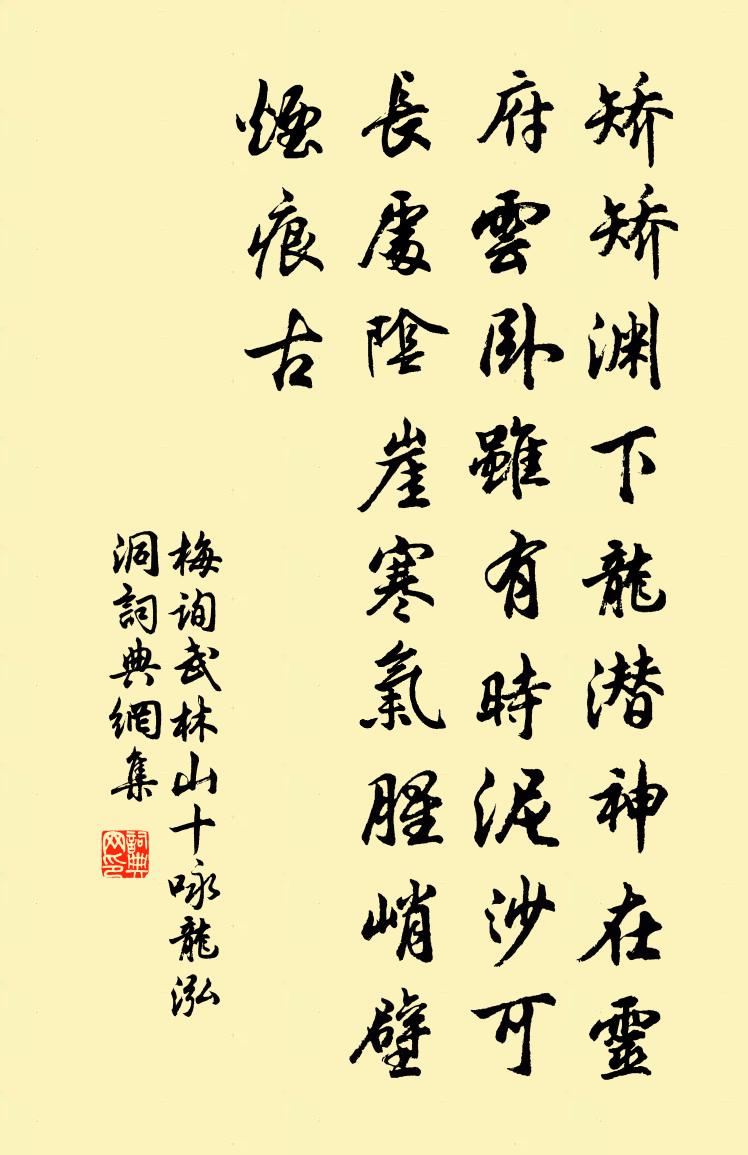 矯矯淵下龍潛神在靈
府雲臥雖有時泥沙可
長處陰崖寒氣腥峭壁
煙痕古
梅詢武林山十咏龍泓
洞詞典網集
詞典
网印